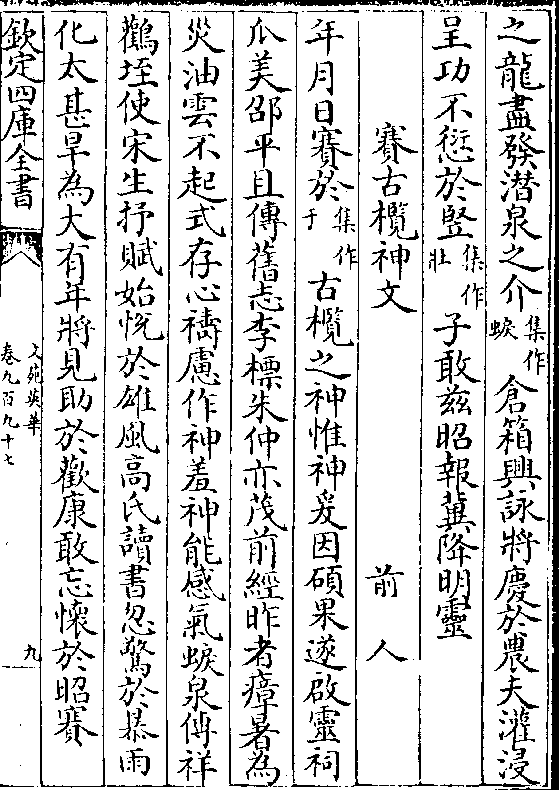 之龍盡發潛泉之介集作蜧倉箱興詠將慶於農夫灌浸
呈功不愆於豎集作壯子敢兹昭報冀降明靈
賽古欖神文 前人
年月日賽於集作于古欖之神惟神爰因碩果遂啟靈祠
瓜美邵平且傳舊志李標朱仲亦茂前經昨者瘴暑為
災油雲不起式存心禱慮作神羞神能感氣蜧泉傳祥
鸛垤使宋生抒賦始恱於雄風高氏讀書忽驚於暴雨
化太甚旱為大有年將見助於歡康敢忘懷於昭賽
欽定四庫全書
文苑英華
卷九百九十七
九